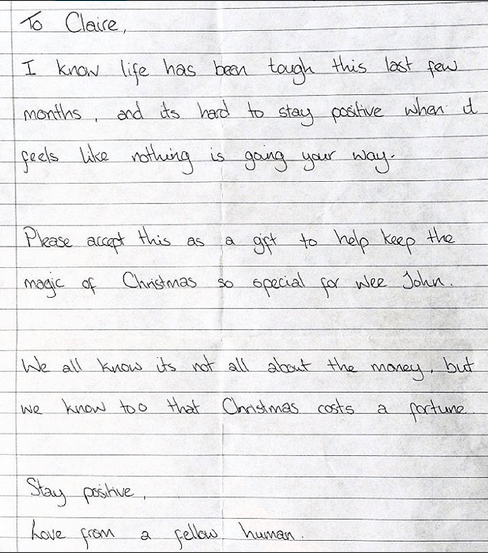 To Claire,
I know life has been tough this last few
months, and its hard to stay positive when it
feels like nothing is going your way.
Please accept this as a gift to help keep the
magic of Christmas so special for wee John.
We all know its not all about the money, but
we know too that Christmas costs a fortune.
Stay positive,
Love from a fellow human.